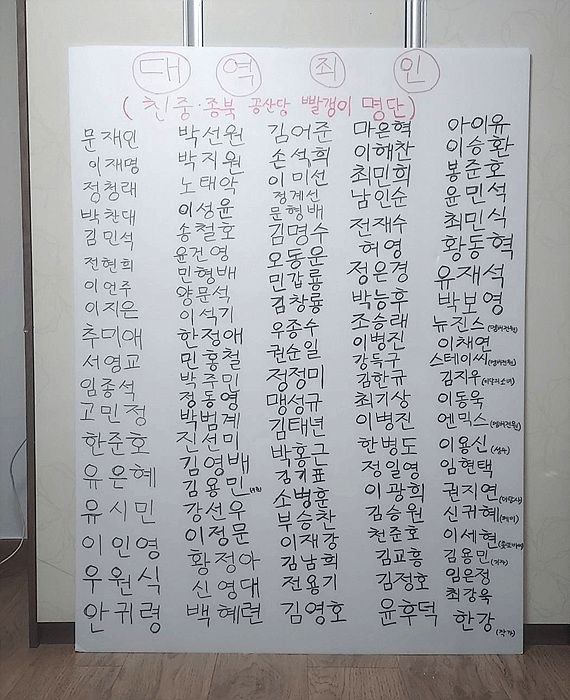 대 역 죄 인
( 친중·종북 공산당 빨갱이 명단 )
문재인
이재명
정청래
박찬대
김민석
전현희
이언주
이지은
추미애
서영교
임종석
고민정
한준호
유은혜
유시민
이인영
우원식
안귀령
박선원
박지원
노태악
이성윤
송철호
윤건영
민형배
양문석
이석기
한정애
민홍철
박주민
정동영
박범계
진선미
김영배
김용민
강선우
이정문
황정아
신영대
백혜련
김어준
손석희
이미선
정계선
문형배
김명수
오동운
민갑룡
김창룡
우종수
권순일
정정미
맹성규
김태년
박홍근
김기표
소병훈
부승찬
이재강
김남희
전용기
김영호
마은혁
이해찬
최민희
남인순
전재수
허영
정은경
박능후
조승래
이병진
강득구
김한규
최기상
이병진
한병도
정일영
이광희
김승원
천준호
김교흥
김정호
윤후덕
아이유
이승환
봉준호
윤민석
최민식
황동혁
유재석
박보영
뉴진스(멤버전원)
이채연
스테이씨(멤버전원)
김지우(이달의소녀)
이동욱
엔믹스(멤버전원)
이용신(성우)
임현택
권지연
신귀혜
이세현
김용민
임은정
최강욱
한강(작가)